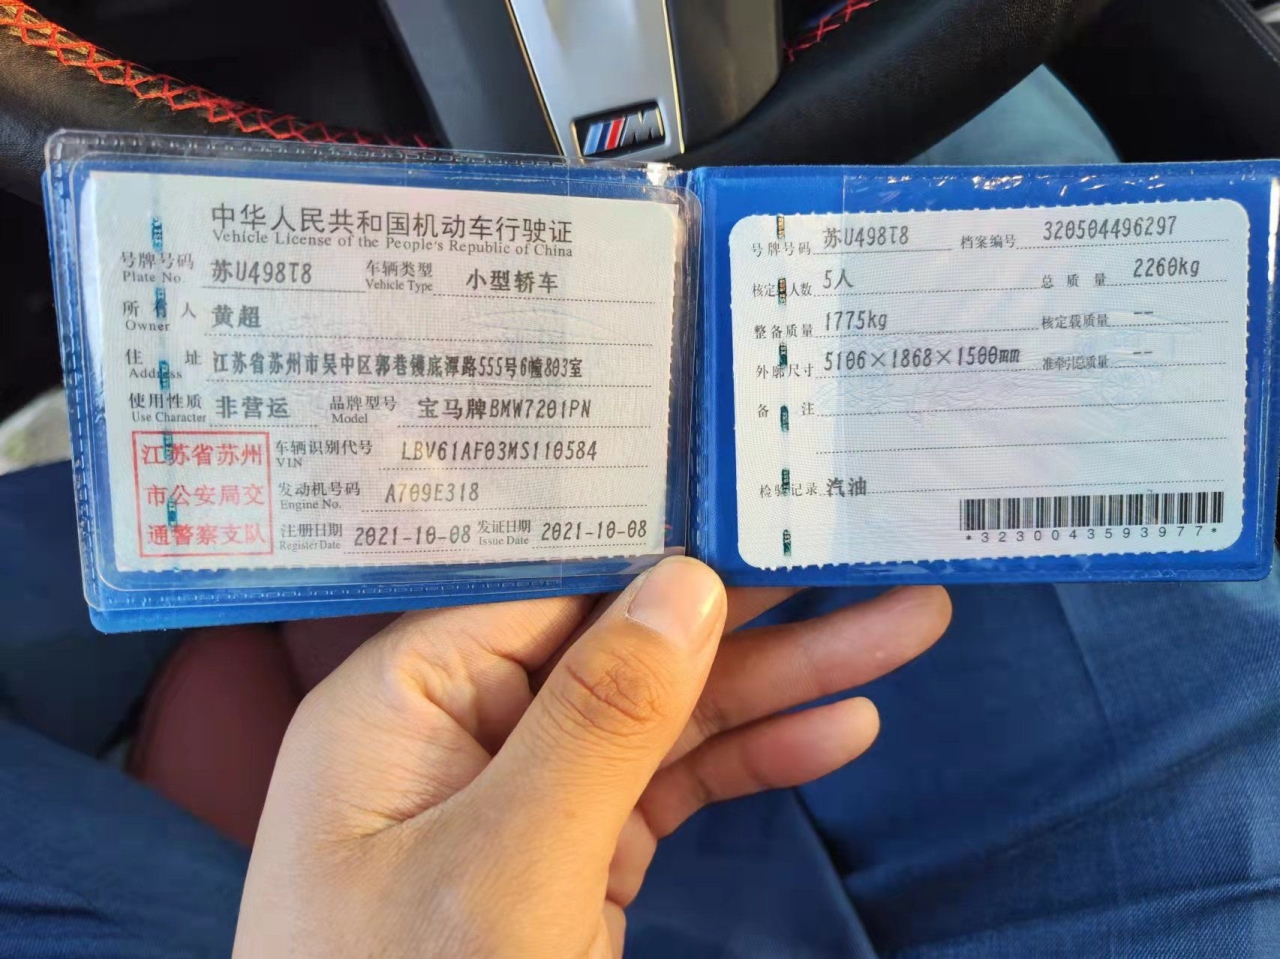 M
中华人民共和国机动车行驶证
Vehicle License of the People's Republic of China
号牌号码 苏U498T8 车辆类型 小型轿车
Plate No. Vehicle Type
所有人 黄超
Owner
住址 江苏省苏州市吴中区郭巷镬底潭路555号6幢803室
Address
使用性质 非营运 品牌型号 宝马牌BMW7201PN
Use Character Model
江苏省苏州
市公安局交
通警察支队
车辆识别代号 LBV61AF03MS110584
VIN
发动机号码 A709E318
Engine No.
注册日期 2021-10-08 发证日期 2021-10-08
Register Date Issue Date
号牌号码 苏U498T8 档案编号 320504496297
核定人数 5人 总质量 2260kg
整备质量 1775kg 核定载质量 --
外廓尺寸 5106×1868×1500mm 准牵引总质量 --
备注
检验记录 汽油
*3230043593977*